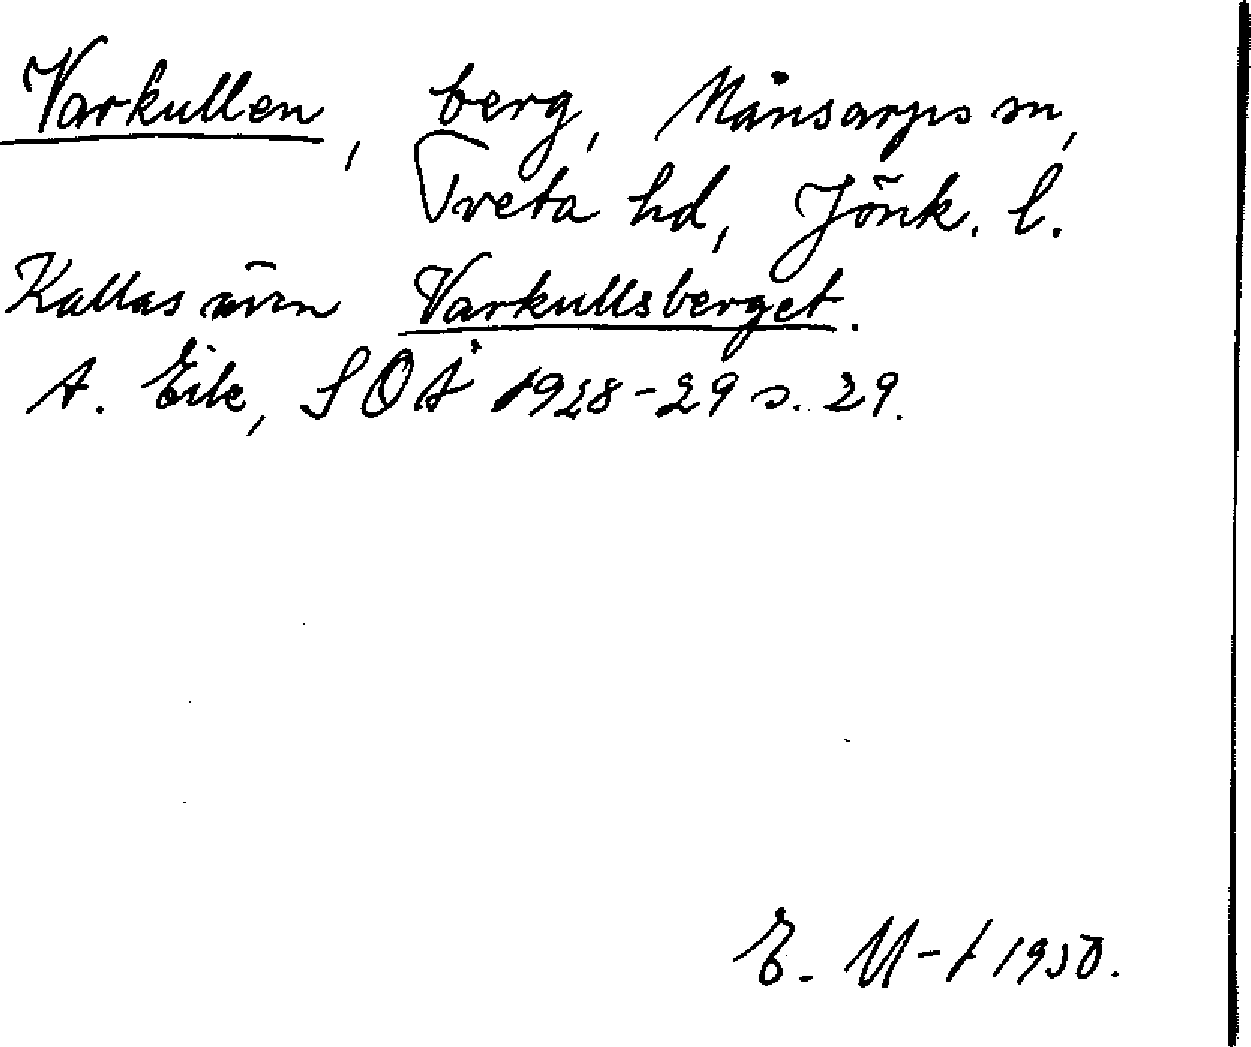 Varkullen, berg, Månsarps sn,
Tveta hd, Jönk. l.
Kallas även Varkullsberget.
A. Ek, SOÅ 1928-29 s. 29.
E. M-t 1950.